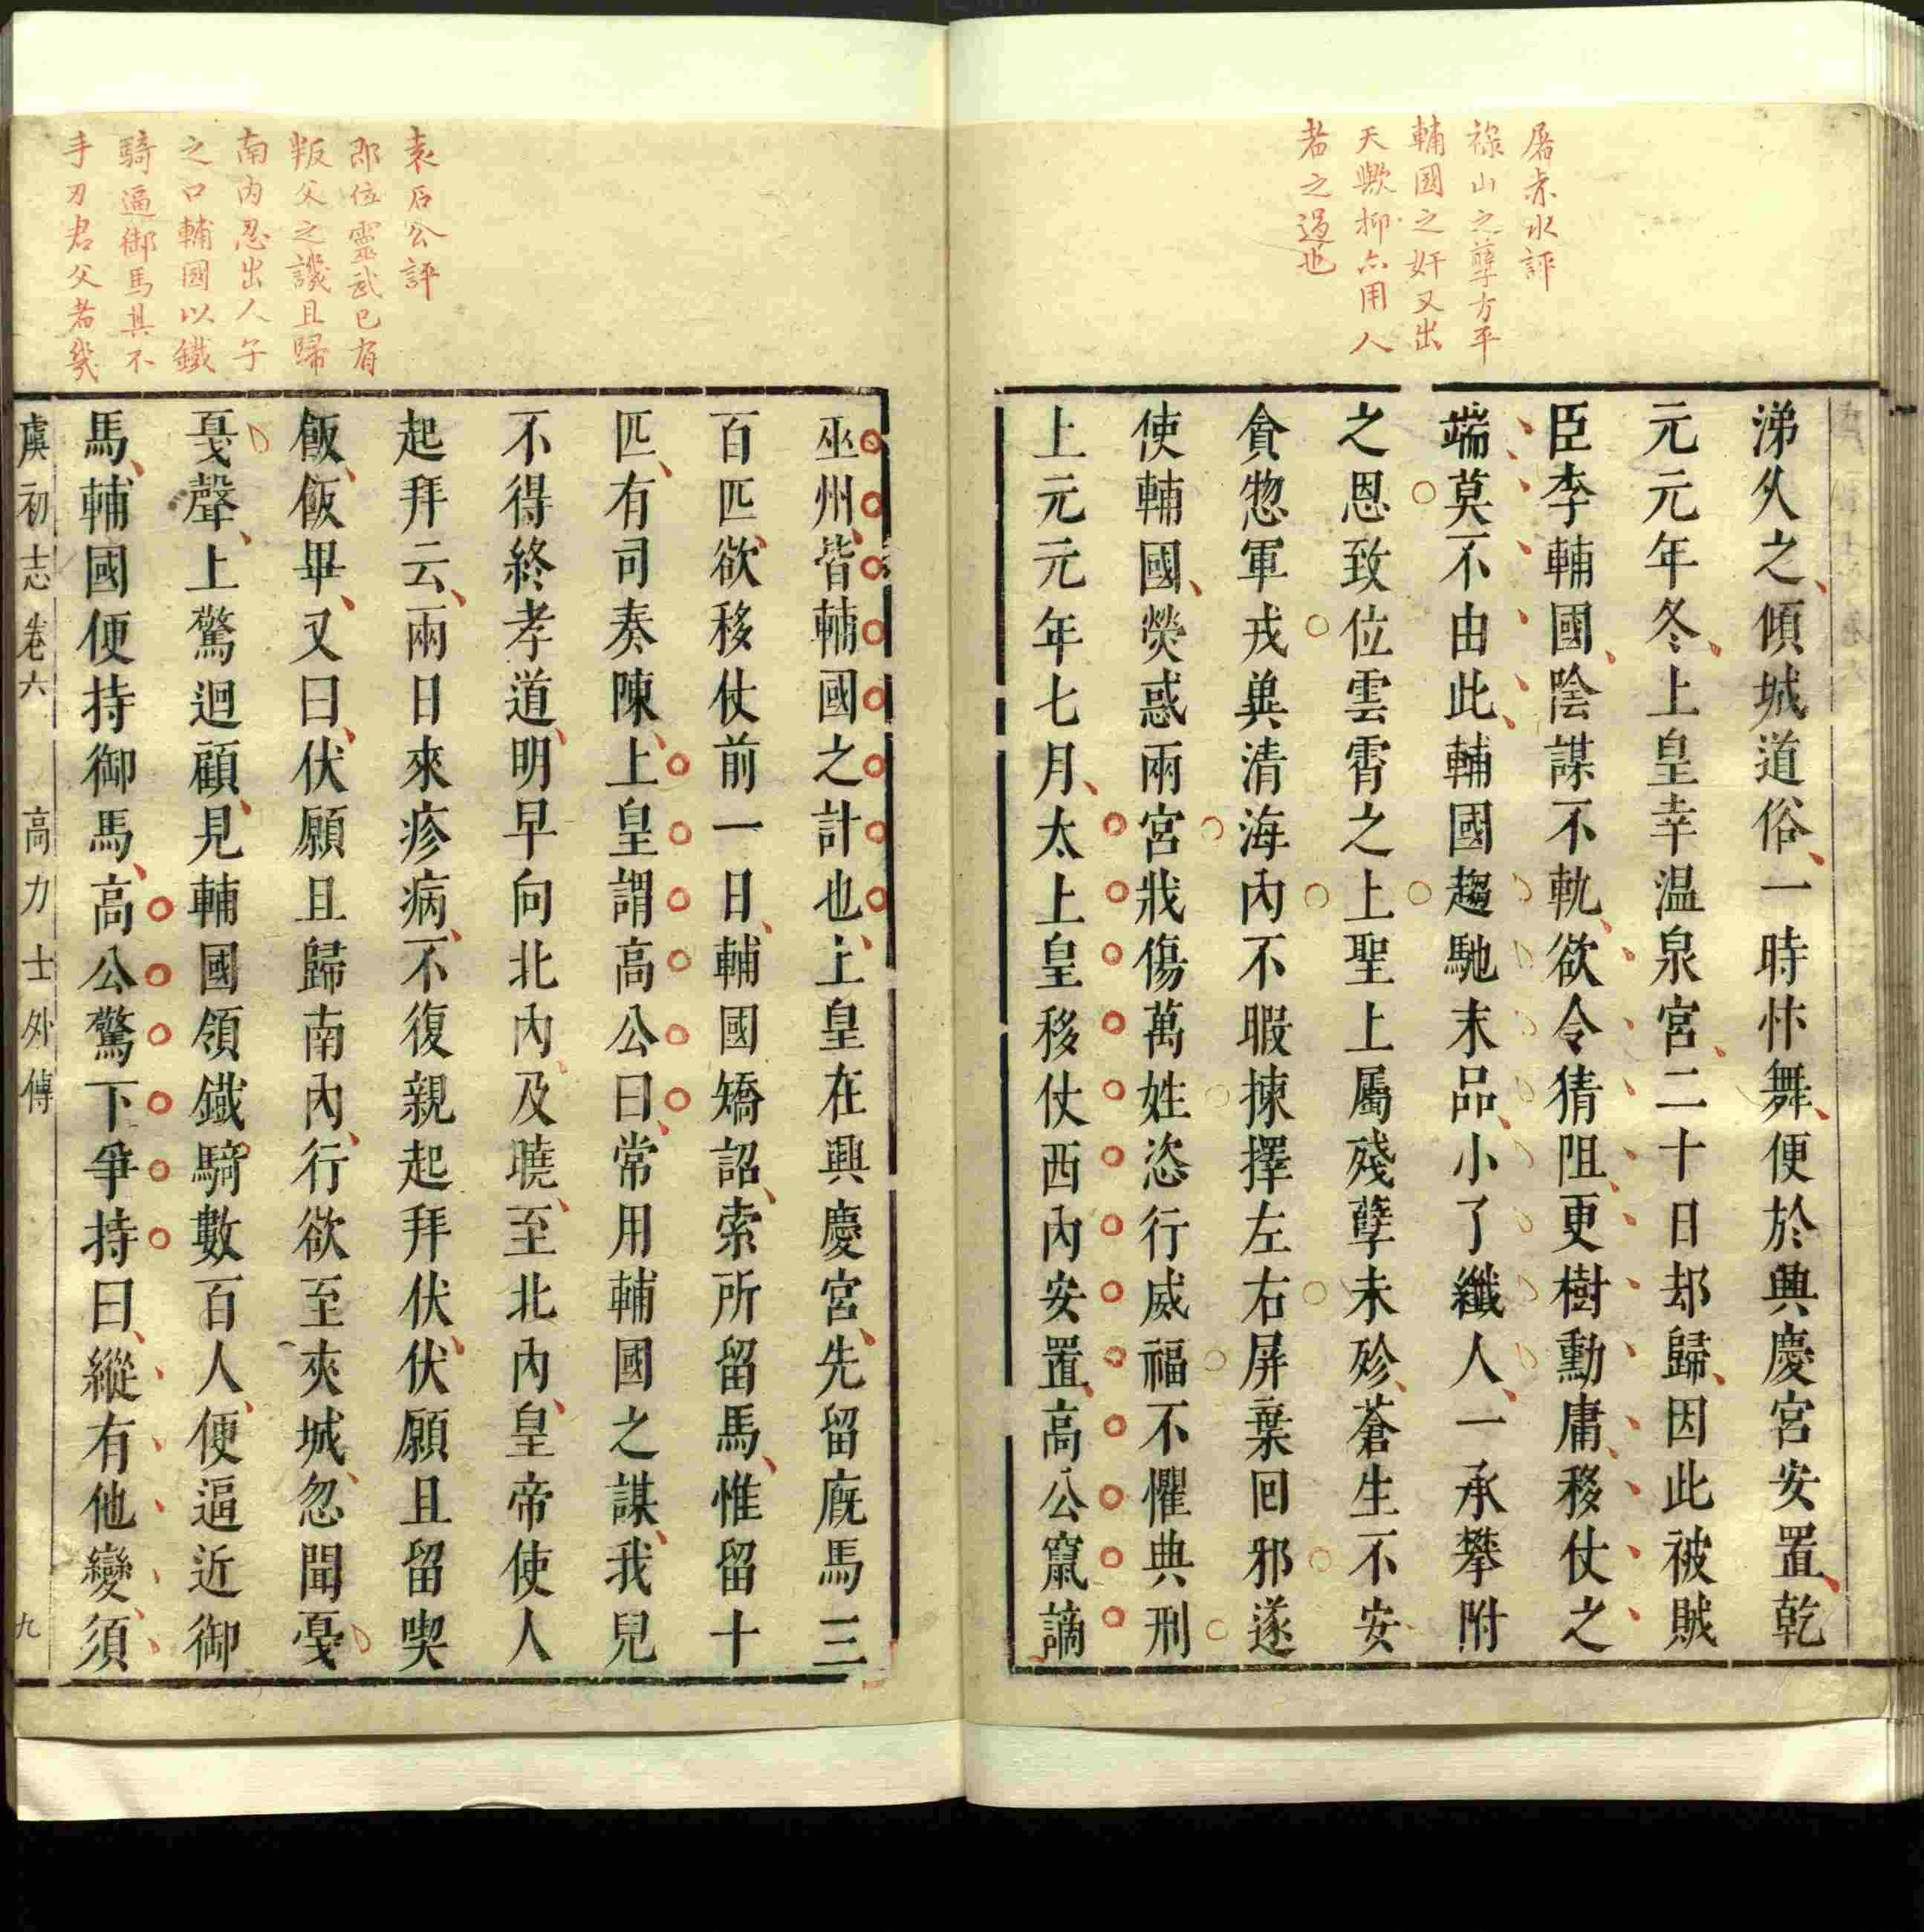 屠赤水評
祿山之孽方平
輔國之奸又出
天歟抑亦用人
者之過也
涕久之傾城道俗一時忭舞便於興慶宮安置乾
元元年冬上皇幸温泉宮二十日却歸因此被賊
臣李輔國陰謀不軌欲令猜阻更樹勳庸移仗之
端莫不由此輔國趨馳末品小了纖人一承攀附
之恩致位雲霄之上聖上屬殘孽未殄蒼生不安
貪惣軍戎兾清海內不暇揀擇左右屏棄回邪遂
使輔國熒惑兩宮戕傷萬姓恣行威福不懼典刑
上元元年七月太上皇移仗西內安置高公竄謫
袁石公評
即位靈武已有
叛父之譏且歸
南內忍出人子
之口輔國以鐵
騎逼御馬其不
手刃君父者幾
巫州皆輔國之計也上皇在興慶宮先留廐馬三
百匹欲移仗前一日輔國矯詔索所留馬惟留十
匹有司奏陳上皇謂高公曰常用輔國之謀我兒
不得終孝道明早向北內及曉至北內皇帝使人
起拜云兩日來疹病不復親起拜伏伏願且留喫
飯飯畢又曰伏願且歸南內行欲至夾城忽聞戞
戞聲上驚迴顧見輔國領鐵騎數百人便逼近御
馬輔國便持御馬高公驚下爭持曰縱有他變須
虞初志卷六 高力士外傳 九